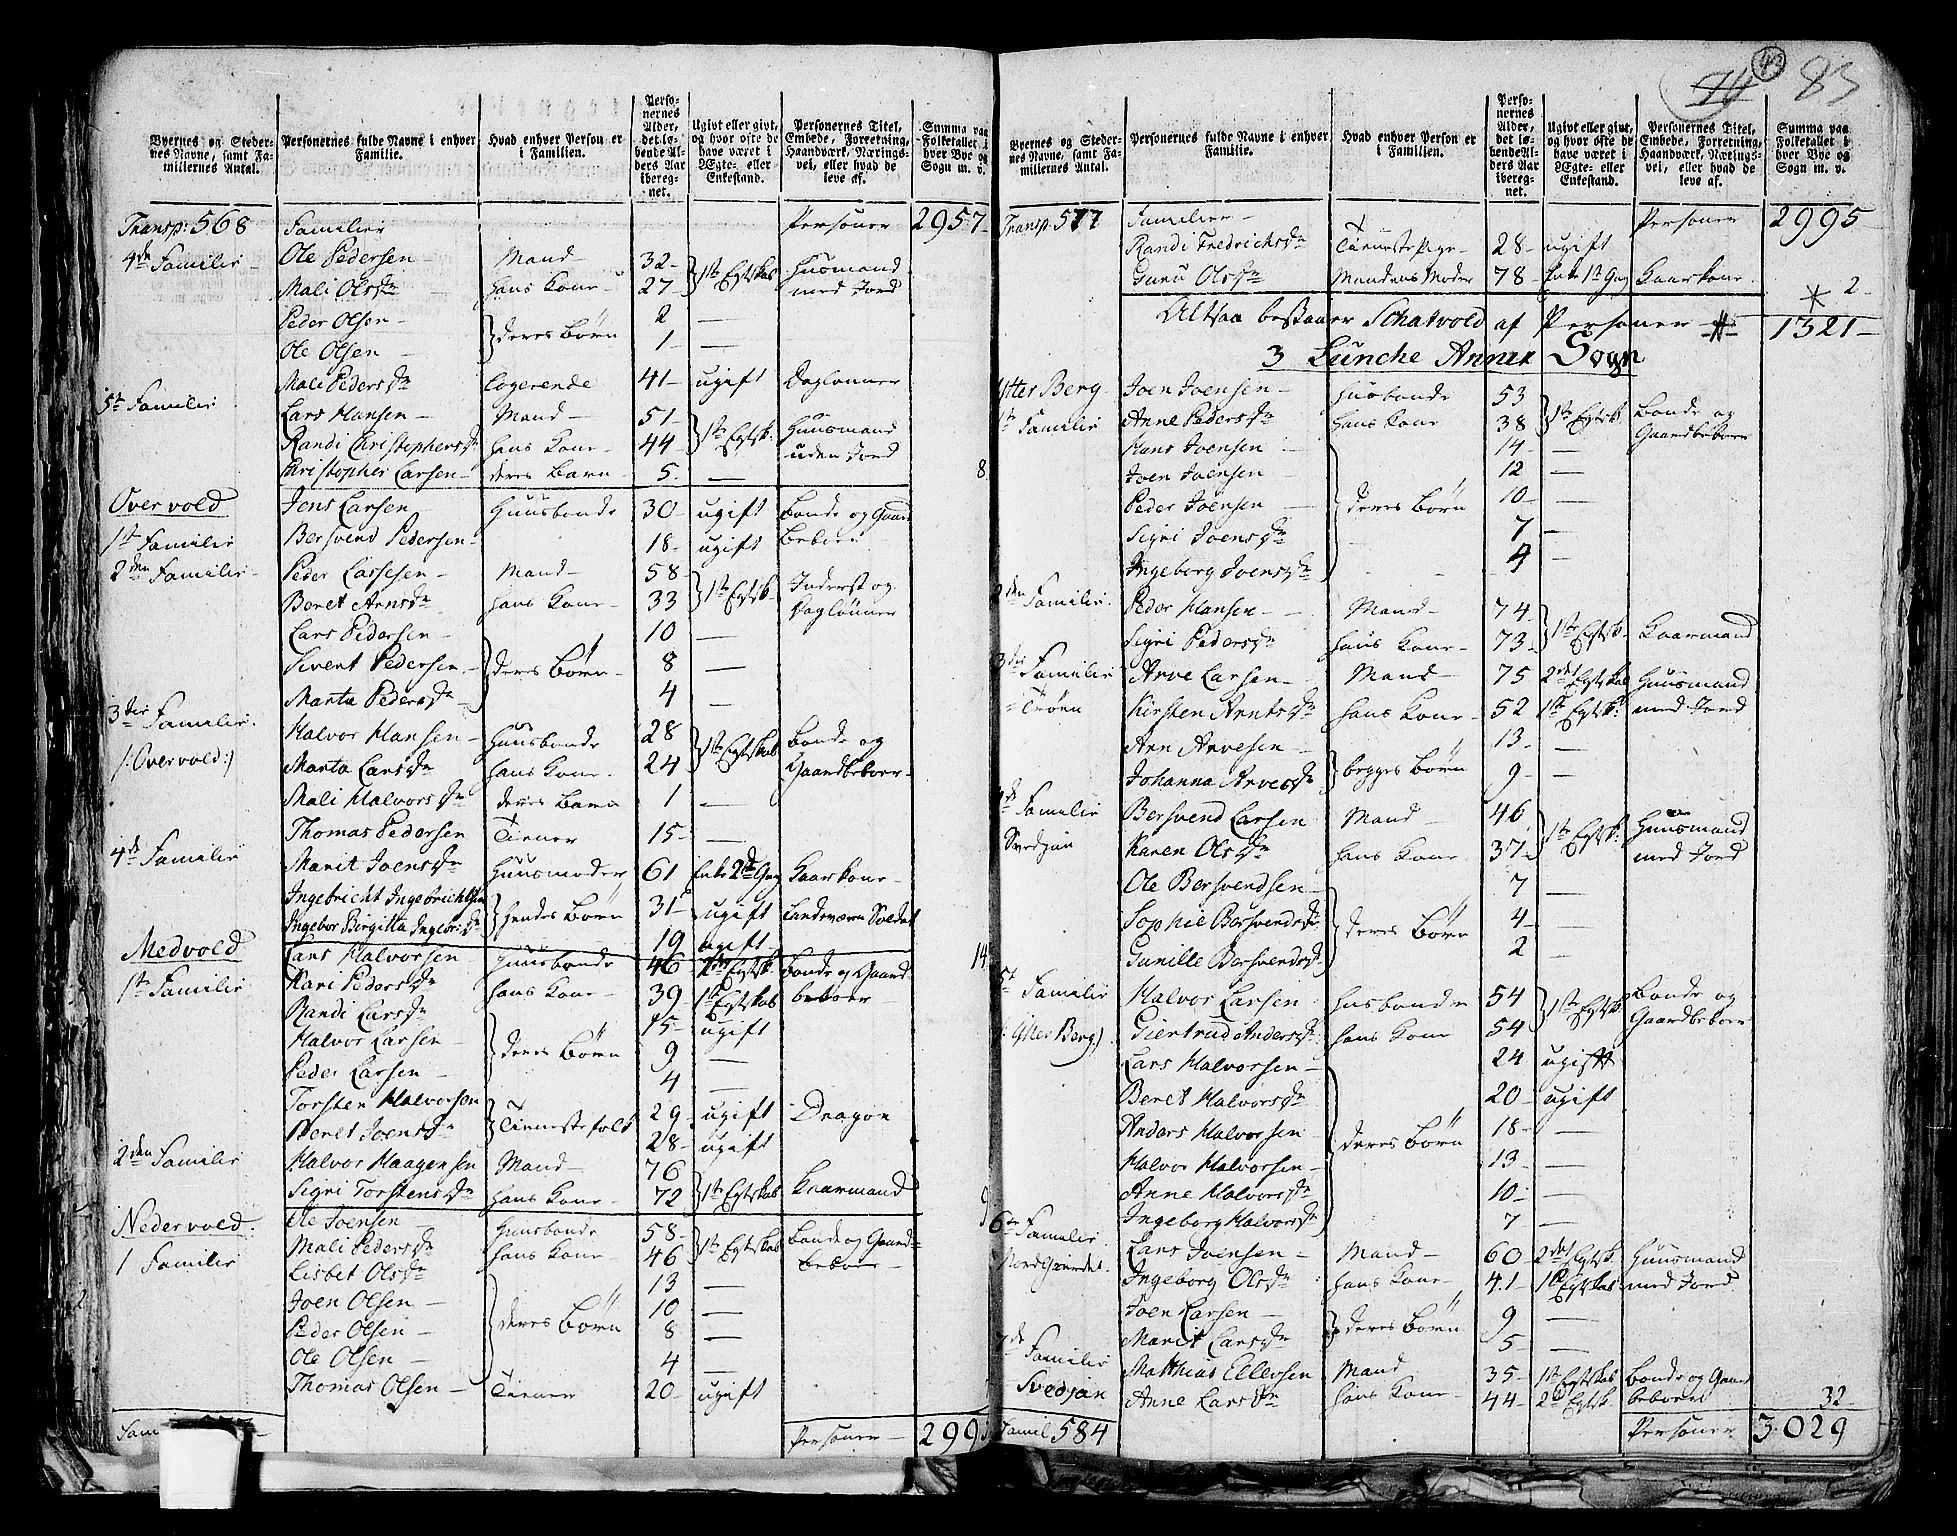 43
74 83
Byernes og Steder-
nes Navne, samt Fa-
miliernes Antal.
Personernes fulde Navne i enhver
Familie.
Hvad enhver Person er
i Familien.
Perso-
nernes
Alder,
det lø-
bende Al-
ders Aar
iberegnet.
Ugivt eller givt,
og hvor ofte de
have været i
Ægte- eller
Enkestand.
Personernes Titel,
Embede, Forretning,
Haandværk, Nærings-
vei, eller hvad de
leve af.
Summa paa
Folketallet i
hver Bye og
Sogn m. v.
Transp: 568 Familier Personer 2957
4de Familie Ole Pedersen Mand 32 1te Egtskab Huusmand
Mali Olsdr hans Kone 27 med Jord
Peder Olsen deres Børn 2
Ole Olsen 1
Mali Pedersdr Logerende 41 ugift Daglønner
5te Familie Lars Hansen Mand 51 1te Egtsk: Huusmand
Randi Christophersdr hans Kone 44 uden Jord
Christopher Larsen deres Barn 5 — 8
Overvold Jens Larsen Huusbonde 30 ugift Bonde og Gaard
1te Familie Bersvend Pedersen 18 ugift Beboer
2den Familie Peder Larsesen Mand 58 1te Egtsk. Inderst og
Beret Arnsdr hans Kone 33 Daglønner
Lars Pedersen 10 —
Sivert Pedersen deres Børn 8 —
Marta Pedersdr 4 —
3die Familie Halvor Hansen Huusbonde 28 1te Egtskab Bonde og
/:Overvold:/ Marta Larsdr hans Kone 24 Gaardbeboer
Mali Halvorsdr deres Barn 1 —
Thomas Pedersen Tiener 15 —
4de Familie Marit Joensdr Huusmoder 61 Enke 2de Gang Kaarkone
Ingebricht Ingebrichtsen hendes Børn 31 ugift Landeværn Soldat
Ingebor Birgitta Ingebr:dr 19 ugift 14
Medvold Lars Halvorsen Huusbonde 46 2det Egtsk. Bonde og Gaard
1te Familie Kari Pedersdr hans Kone 39 1te Egtskab beboer
Randi Larsdr 15 ugift
Halvor Larsen deres Børn 9 —
Peder Larsen 4 —
Torsten Halvorsen Tienestefolk 29 ugift Dragon
Beret Joensdr 28 ugift
2den Familie Halvor Haagensen Mand 76 1te Egtskab Kaarmand
Sigri Torstensdr hans Kone 72 9
Nedervold Ole Joensen Huusbonde 58 1te Egtskab Bonde og Gaard-
1 Familie Mali Pedersdr hans Kone 46 beboer
Lisbet Olsdr 13 —
Joen Olsen deres Børn 10 —
Peder Olsen 8 —
Ole Olsen 4 —
Thomas Olsen Tiener 20 ugift
Personer 2995
Byernes og Steder-
nes Navne, samt Fa-
miliernes Antal.
Personernes fulde Navne i enhver
Familie.
Hvad enhver Person er
i Familien.
Perso-
nernes
Alder,
det lø-
bende Al-
ders Aar
iberegnet.
Ugivt eller givt,
og hvor ofte de
have været i
Ægte- eller
Enkestand.
Personernes Titel,
Embede, Forretning,
Haandværk, Nærings-
vei, eller hvad de
leve af.
Summa paa
Folketallet i
hver Bye og
Sogn m. v.
Transp: 577 Familier Personer 2995
Randi Fredrichsdr Tienestepige 28 ugift
Guru Olsdr Mandens Moder 78 Enke 1te Gang Kaarkone 2
Altsaa bestaaer Schatvold af Personer 1321
3 Lunche Annex Sogn
Ytter Berg Joen Joensen Husbonde 53 1te Egtsk Bonde og
1te Familie Anne Pedersdr hans Kone 38 Gaardbeboer
Hans Joensen 14 —
Joen Joensen 12 —
Peder Joensen deres Børn 10 —
Sigri Joensdr 7 —
Ingeborg Joensdr 4 —
2den Familie Peder Hansen Mand 74 1te Egtsk. Kaarmand
Sigri Pedersdr hans Kone 73
3die Familie Arve Larsen Mand 75 2det Egtskab Huusmand
Trøen Kirsten Arntsdr hans Kone 52 1te Egtsk. med Jord
Arn Arvesen 13 —
Johanna Arvesdr begges Børn 9 —
4de Familie Bersvend Larsen Mand 46 1te Egtsk. Huusmand
Svedjan Karen Olsdr hans Kone 37 med Jord
Ole Bersvendsen 7 —
Sophie Bersvendsdr deres Børn 4 —
Gunille Bersvendsdr 2 —
5te Familie Halvor Larsen husbonden 54 1te Egtsk. Bonde og
/: Ytter Berg:/ Giertrud Andersdr hans Kone 54 Gaardbeboer
Lars Halvorsen 24 ugift
Beret Halvorsdr 20 ugift
Anders Halvorsen deres Børn 18 —
Halvor Halvorsen 13 —
Anne Halvorsdr 10 —
Ingeborg Halvorsdr 7 —
6te Familie Lars Joensen Mand 60 2det Egtsk. Huusmand
Ingeborg Olsdr hans Kone 41 1te Egtskab med Jord
Joen Larsen deres Børn 9 —
Marit Larsdr 5 —
7de Familie Matthias Ellevsen Mand 35 1te Egtskab Bonde og Gaard
Svedjan Anne Larsdr hans Kone 44 2d Egtsk. beboer 32
Famil 584 Personer 3029